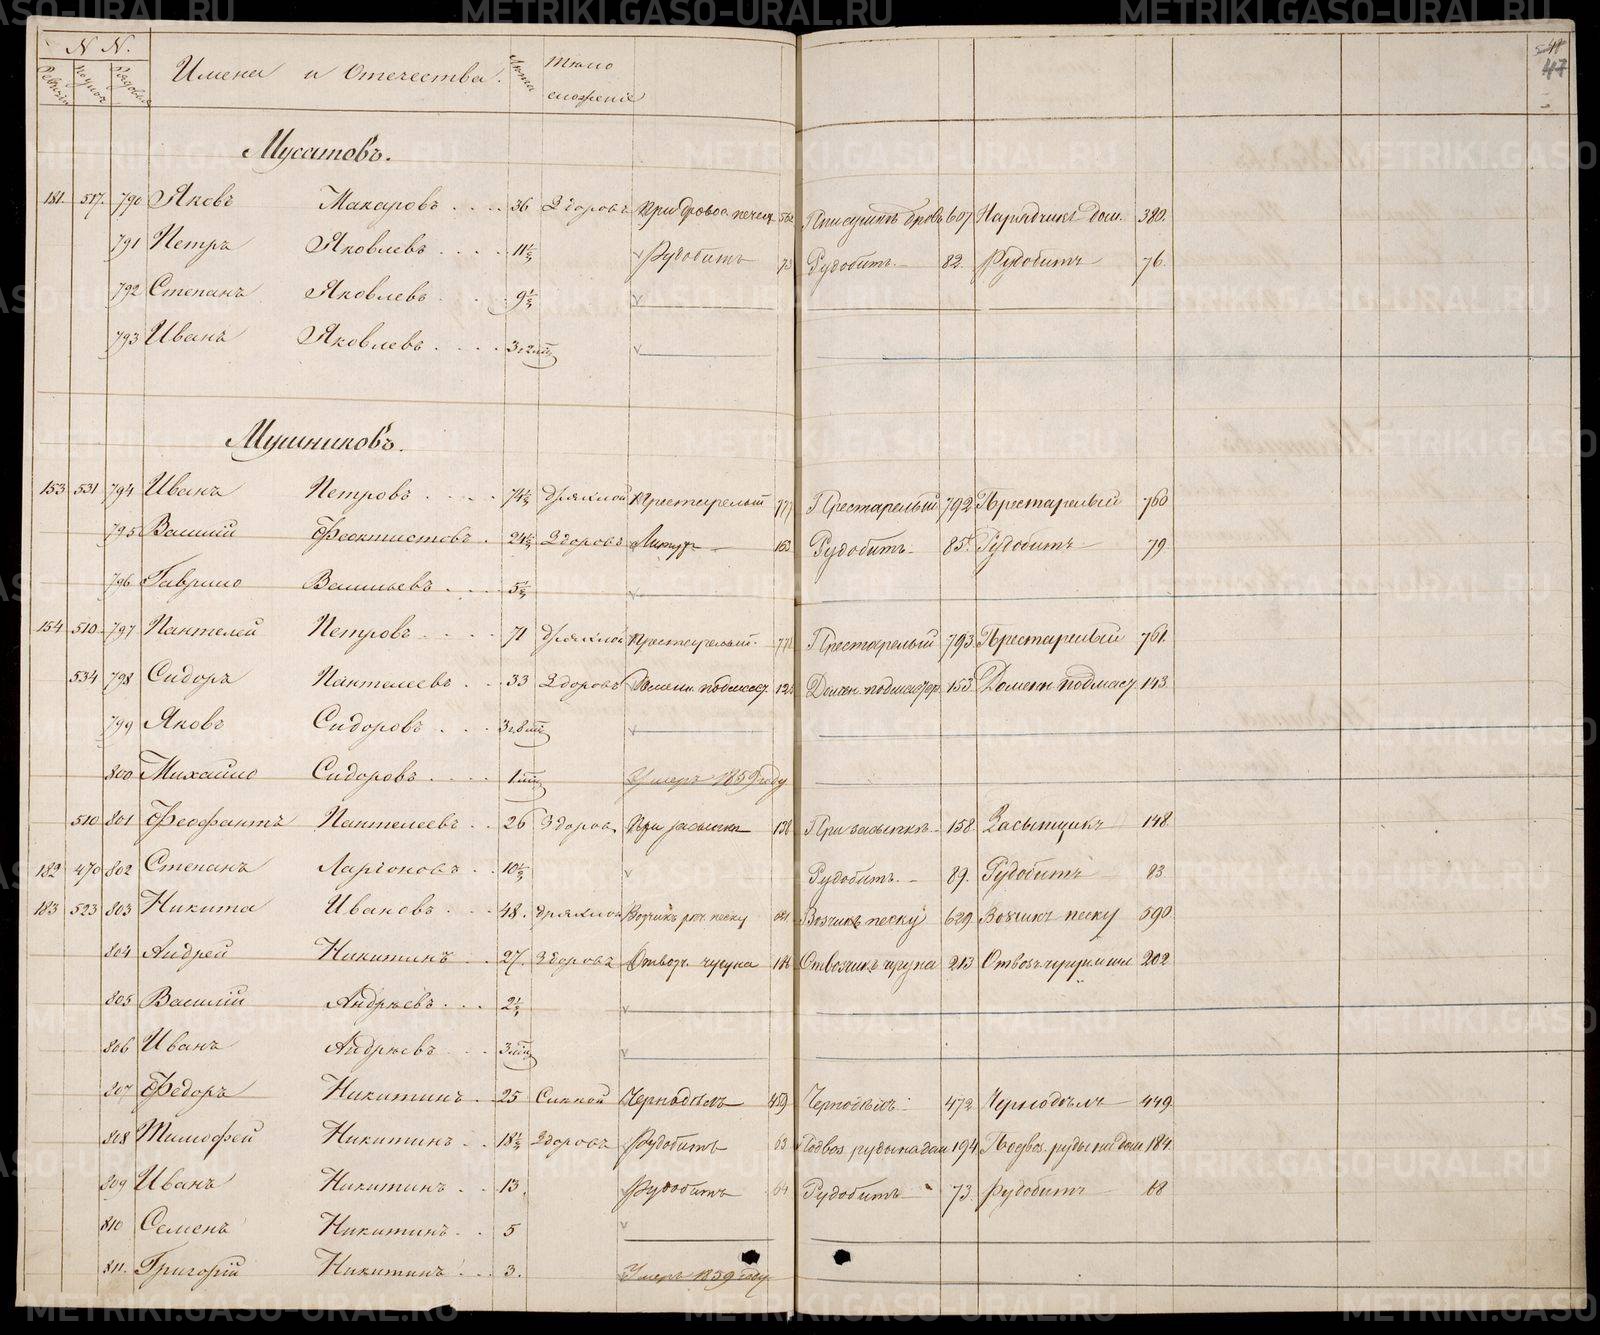 N N.
Имена и Отечества. Лета Тело сложеніе
47
Мусатовъ.
181. 517. 790 Яковъ Макаровъ 36 Здоровъ При дровос. печах Пписчикъ дровъ 607 Нарядчикъ дом. 380.
791 Петръ Яковлевъ 11½ Рудобитъ 73 Рудобитъ 82. Рудобитъ 76.
792 Степанъ Яковлевъ 9½
793 Иванъ Яковлевъ
Мушниковъ.
153 531 794 Иванъ Петровъ 74½ Дряхлой Престарелый 777 Престарелый 792 Престарелый 760
795 Василій Феоктистовъ 24½ Здоровъ 163 Рудобитъ 85. Рудобитъ 79.
796 Гаврило Васильевъ 5½
154 510 797 Пантелей Петровъ 71 Дряхлой Престарелый 778 Престарелый 793 Престарелый 761.
534 798 Сидоръ Пантелеевъ 33 Здоровъ Доменн. подмаст. Домен. подмастер 153 Доменн подмаст 143
799 Яковъ Сидоровъ
800 Михайло Сидоровъ Умеръ 1859 году
510 801 Феофантъ Пантелеевъ 26 Здоровъ При засыпки 138 При засыпкъ 158 Засыпщикъ 148
182 470 802 Степанъ Ларіоновъ 10½ Рудобитъ 89. Рудобитъ 83
183 523 803 Никита Ивановъ 48. Дряхлой Возчикъ реч. песку Возчикъ песку 629 Возчикъ песку 590
804 Андрей Никитинъ 27. Здоровъ Отвозч. чугуна Отвозчикъ чугуна 213 202
805 Василій Андреевъ 2½
806 Иванъ Андреевъ
807 Федоръ Никитинъ 25 Чернодѣлъ 459 Чернодѣлъ 472 Чернодѣлъ 449
808 Тимофей Никитинъ 18½ Здоровъ Рудобитъ 63 Подвоз. руды на дом 194 Подвоз. руды на дом 184.
809 Иванъ Никитинъ 13. Рудобитъ 64 Рудобитъ 73. Рудобитъ 68
810 Семенъ Никитинъ 5
811. Григорій Никитинъ 3. Умеръ 1859 году
METRIKI.GASO-URAL.RU